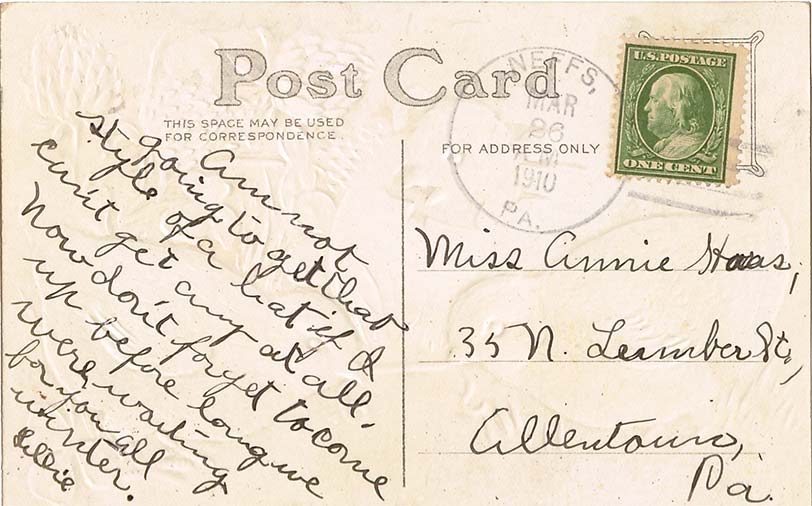 Post Card
THIS SPACE MAY BE USED
FOR CORRESPONDENCE.
FOR ADDRESS ONLY
NEFFS,
MAR
26
AM
1910
PA.
U.S. POSTAGE
ONE CENT
Am not
going to get that
style of a hat if I
can't get any at all.
Now don't forget to come
up before long we
were waiting
for you all
winter.
Lillie
Miss Annie Haas,
35 N. Leamber St,
Allentown,
Pa.